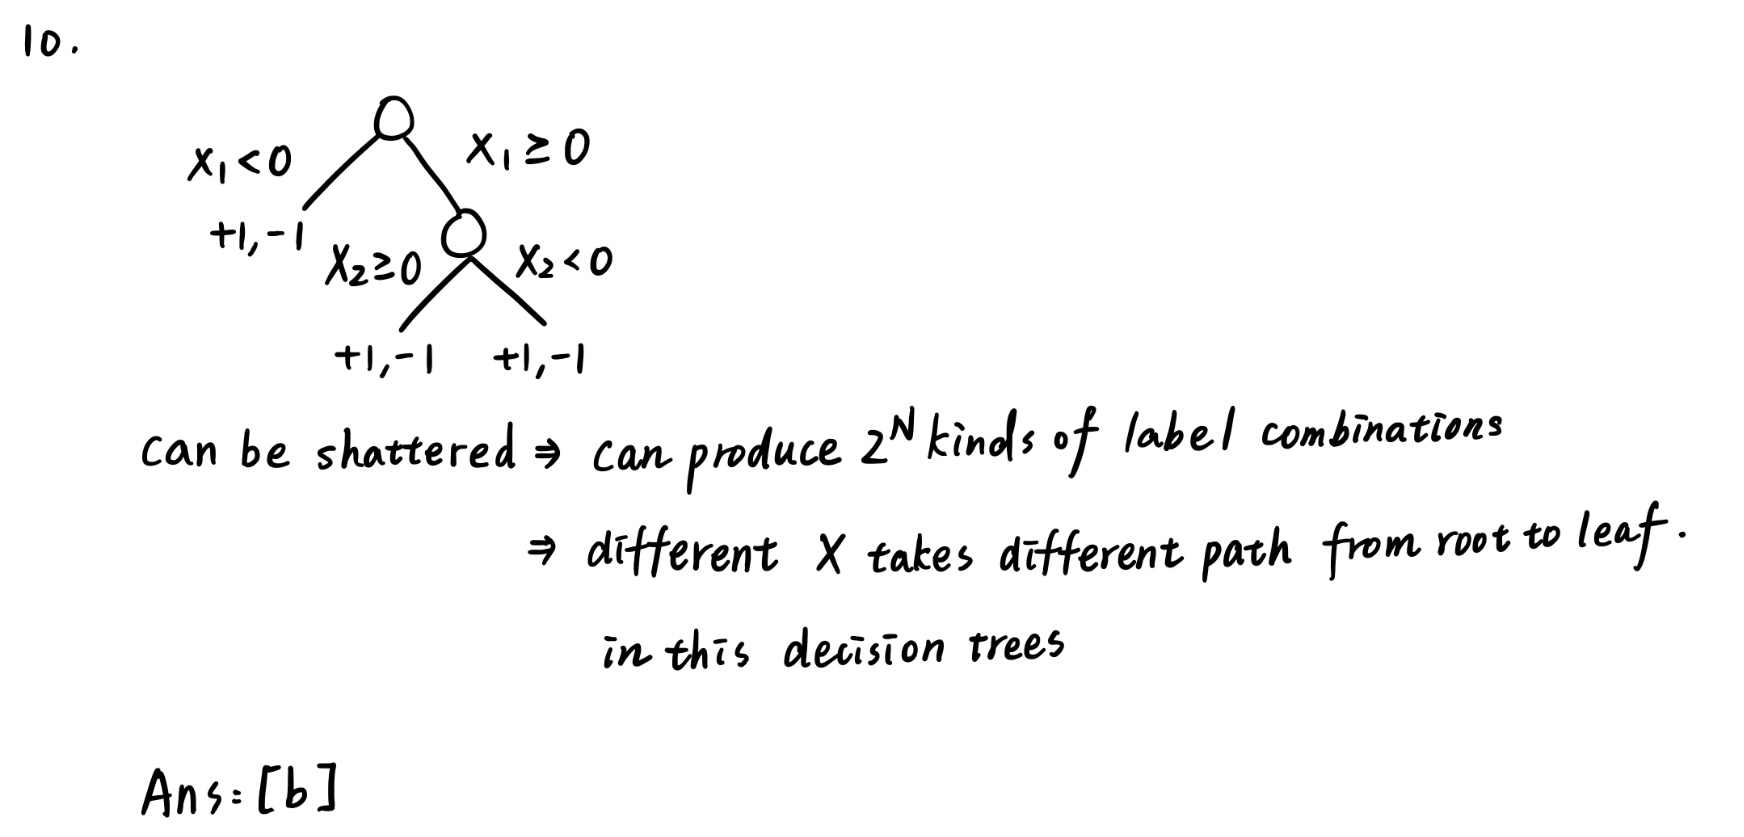 10.
X₁<0
X₁≥0
+1,-1
X₂≥0
X₂<0
+1,-1
+1,-1
can be shattered ⇒ can produce 2ᴺ kinds of label combinations
⇒ different X takes different path from root to leaf.
in this decision trees
Ans:[b]